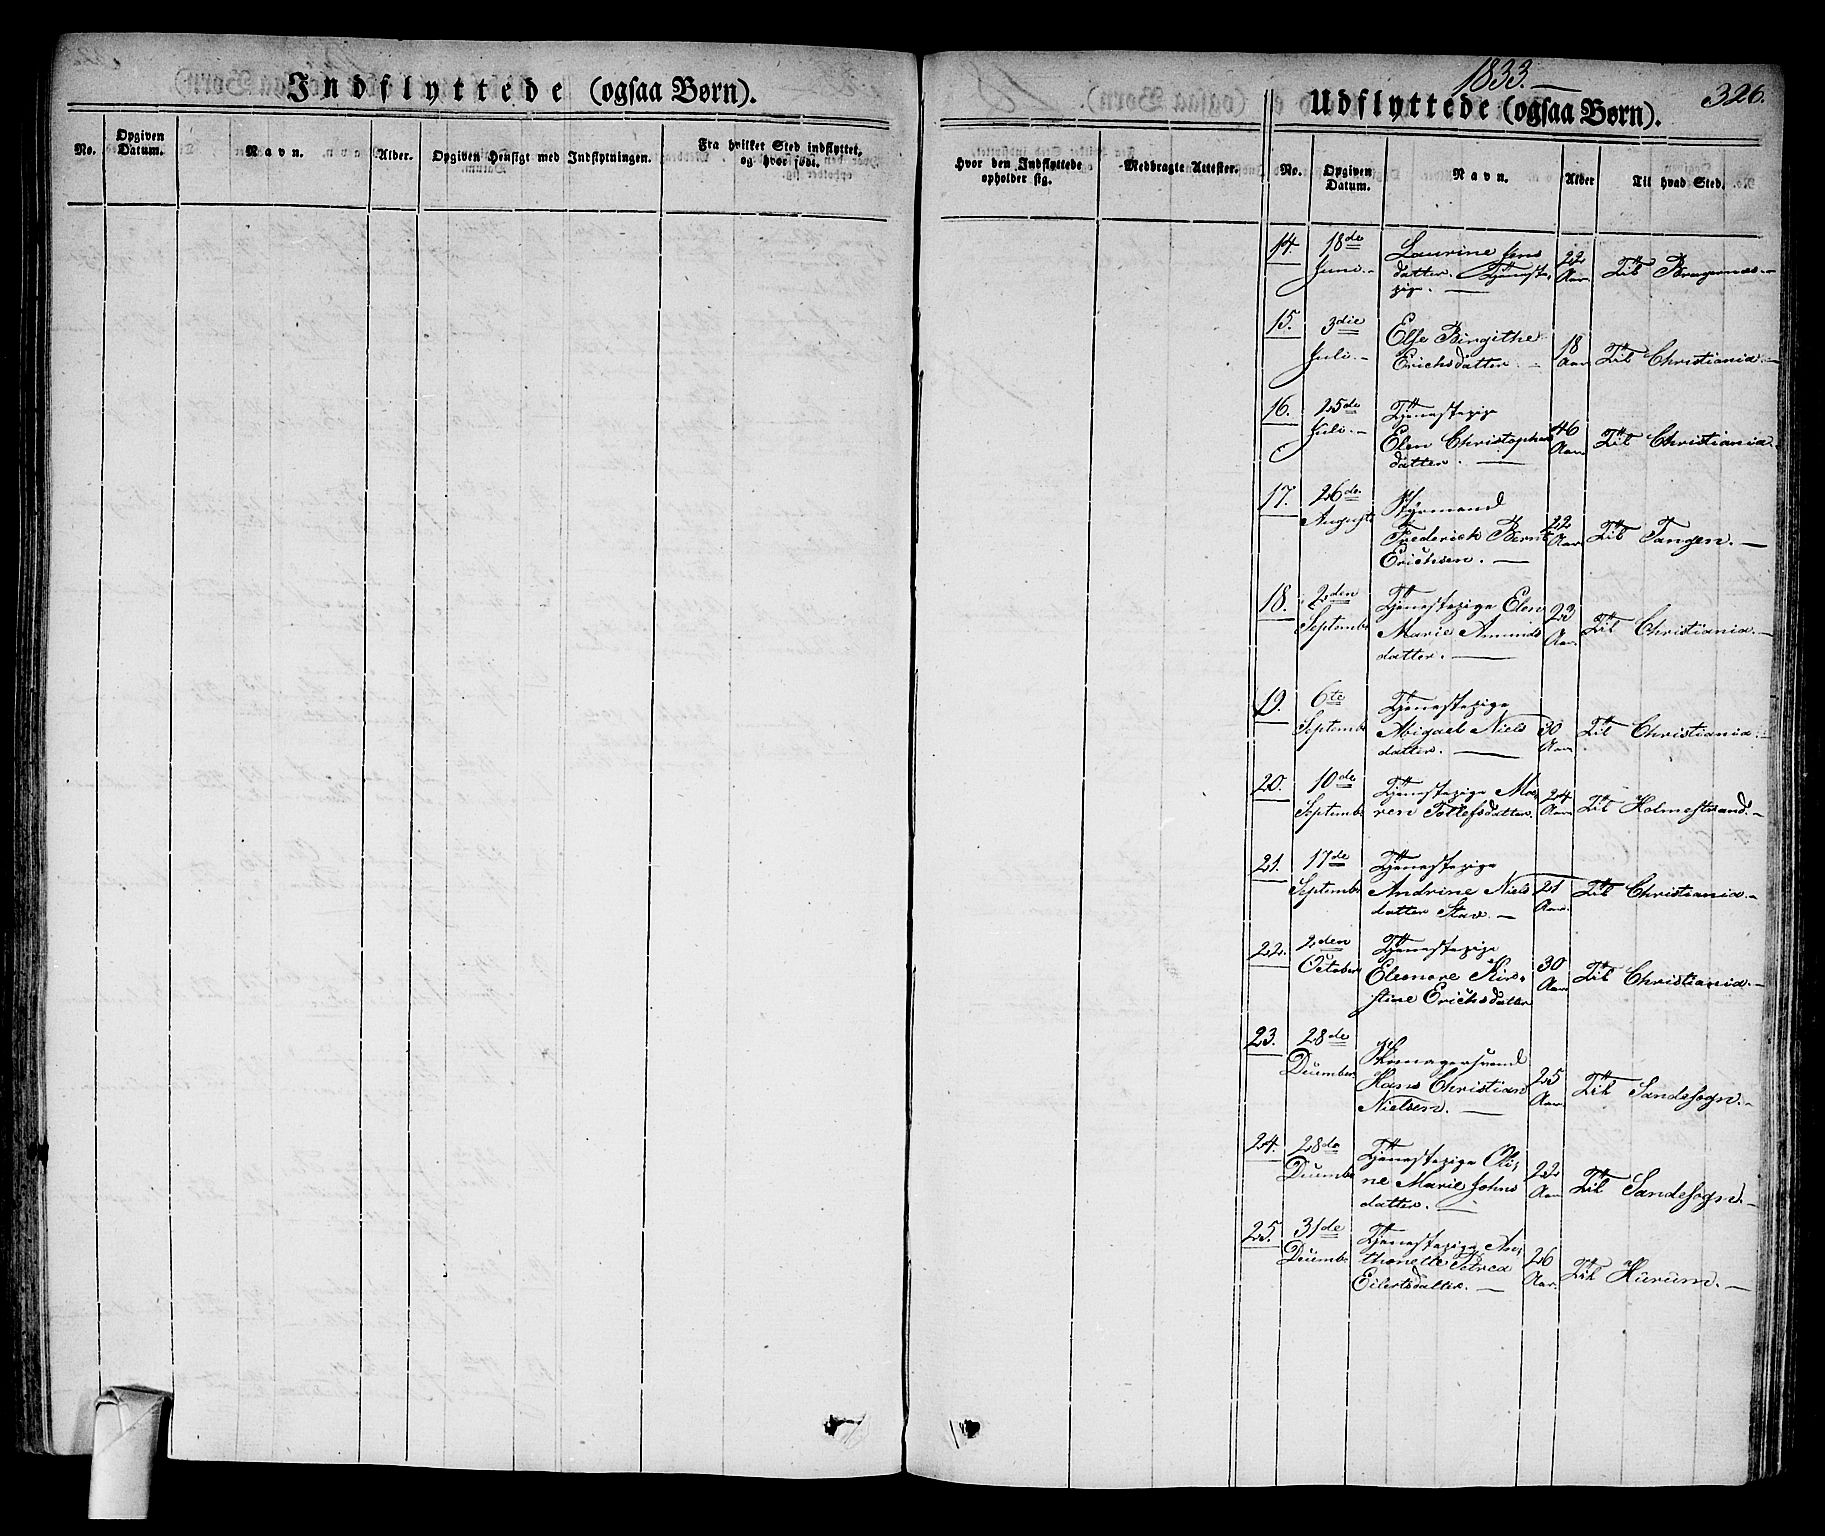 Indflyttede (ogsaa Børn).
No.
Opgiven Datum.
Navn.
Alder.
Opgiven Hensigt med Indflytningen.
Fra hvilket Sted indflyttet, og hvor født.
Hvor den Indflyttede opholder sig.
Medbragte Attester.
1833.—
326.
Udflyttede (ogsaa Børn).
No.
Opgiven Datum.
Navn.
Alder
Til hvad Sted.
14. 18de Juni.- Laurine Jens
datter. Tjeneste
pige. — 22 Aar. Til Bragernæs.-
15. 3die Juli.- Else Birgithe
Erichsdatter. - 18 Aar Til Christiania.-
16. 25de Juli.- Tjenestepige
Elen Christophers
datter. — 46 Aar Til Christiania.
17. 26de August Styrmand
Frederich Bernt
Erichsen. — 22 Aar Til Tangen.—
18. 2den Septembr Tjenestepige Elen
Marie Amunds
datter. — 23 Aar. Til Christiania.—
19. 6te Septembr Tjenestepige
Abigael Niels
datter. — 30 Aar Til Christiania.
20. 10de Septembr Tjenestepige Ma-
ren Tollefsdatter. 24 Aar Til Holmestrand.-
21. 17de Septembr Tjenestepige
Andrine Niels
datter Stav. — 21 Aar. Til Christiania.-
22. 2den October Tjenestepige
Eleonore Kir-
stine Erichsdatter 30 Aar Til Christiania.-
23. 28de December Skomagersvend
Hans Christian
Nielsen. — 25 Aar. Til Sandesogn.-
24. 28de Decembr Tjenestepige Oli-
ne Marie Johns
datter. — 22 Aar Til Sandesogn.-
25. 31de Decembr Tjenestepige An-
thonette Petrea
Eilertsdatter. — 26 Aar. Til Hurum.—